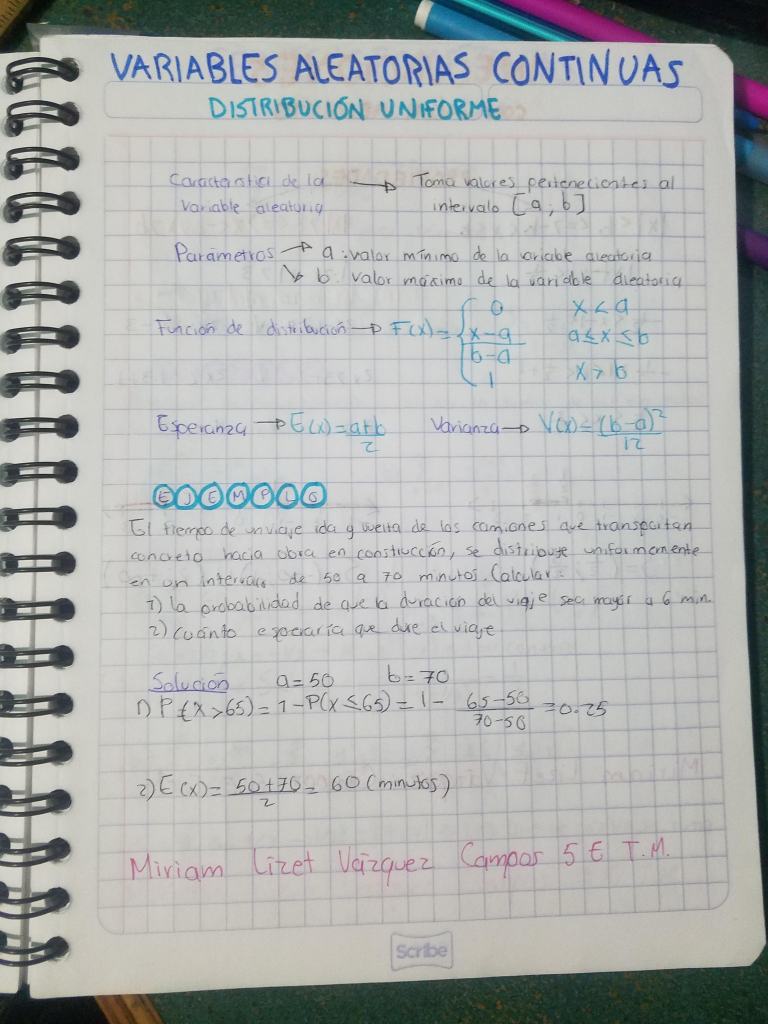 VARIABLES ALEATORIAS CONTINUAS
DISTRIBUCIÓN UNIFORME
Característica de la variable aleatoria → Toma valores pertenecientes al intervalo [a, b]
Parámetros → a: valor mínimo de la variable aleatoria
↘ b: valor máximo de la variable aleatoria
Función de distribución → F(x) = { 0 x < a
x-a / b-a a ≤ x ≤ b
1 x > b
Esperanza → E(x) = a+b / 2 Varianza → V(x) = (b-a)² / 12
EJEMPLO
El tiempo de un viaje ida y vuelta de los camiones que transportan
concreto hacia obra en construcción, se distribuye uniformemente
en un intervalo de 50 a 70 minutos. Calcular:
1) la probabilidad de que la duración del viaje sea mayor a 6 min.
2) cuánto esperaría que dure el viaje
Solución a=50 b=70
1) P(x>65) = 1-P(x≤65) = 1 - 65-50 / 70-50 = 0.25
2) E(x) = 50+70 / 2 = 60 (minutos)
Miriam Lizet Vázquez Campos 5 E T.M.
Scribe